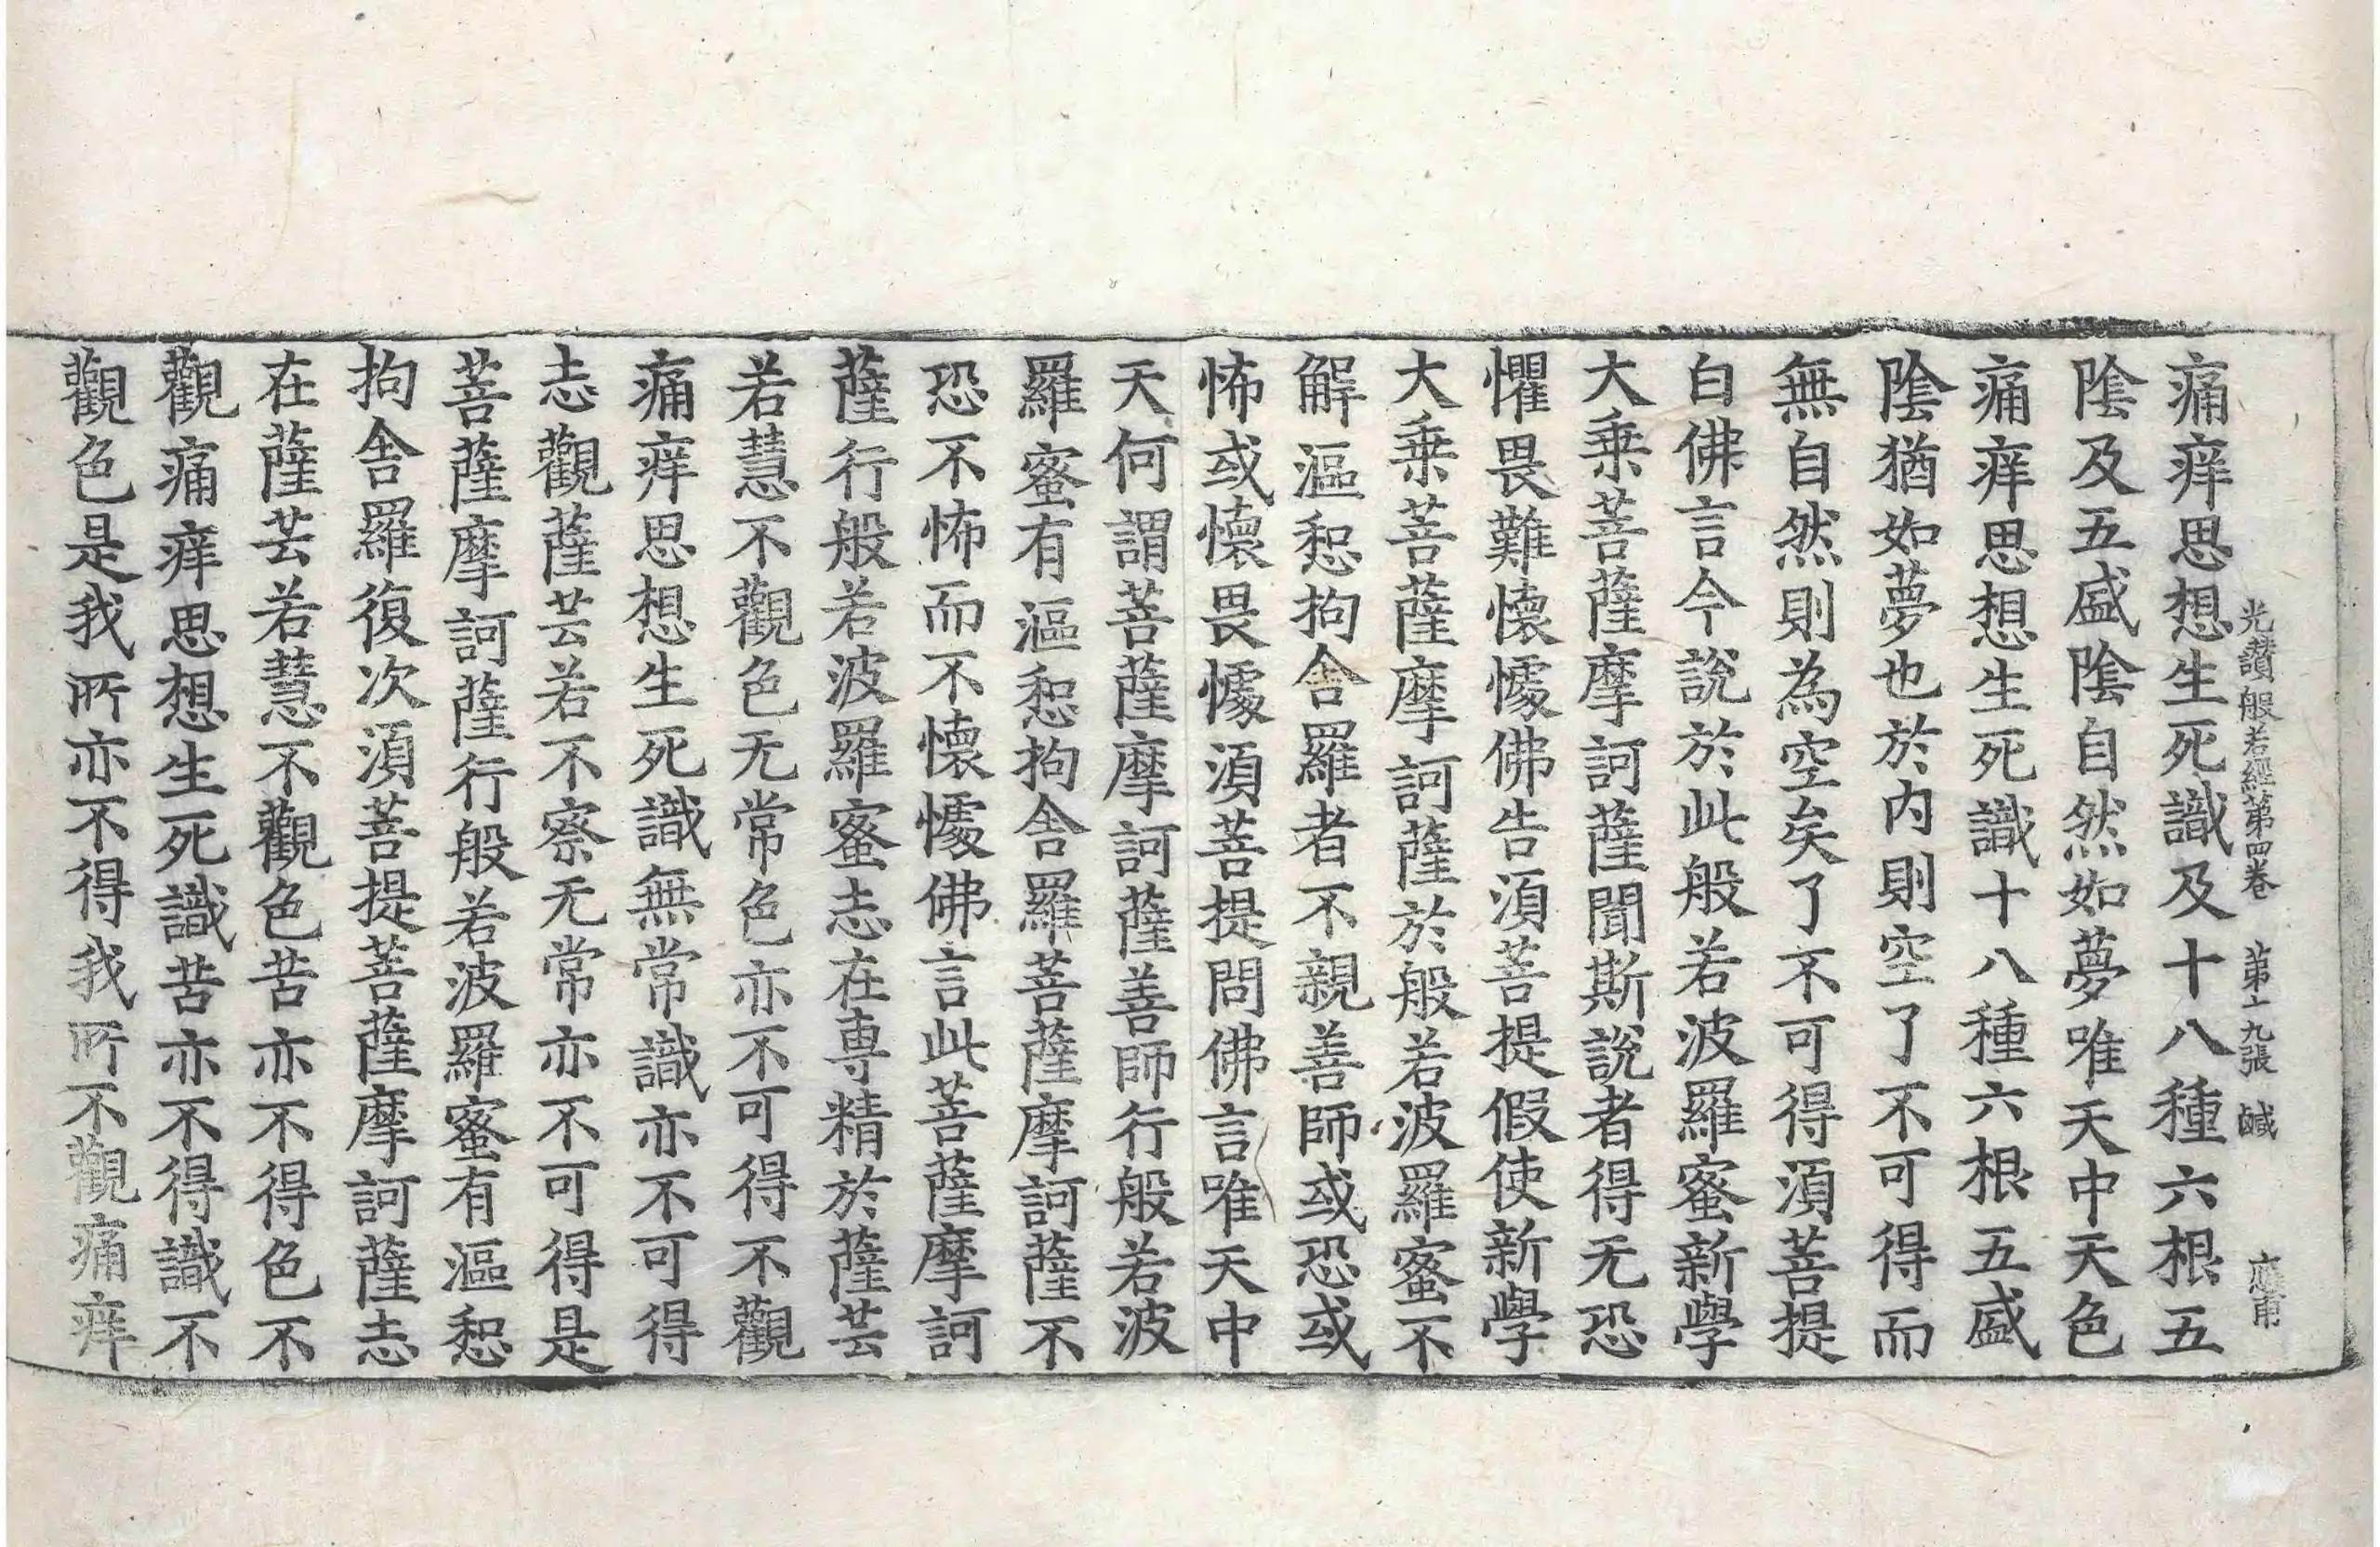 光讃般若經第四卷　第十九張　鹹　應甫
痛痒思想生死識及十八種六根五
陰及五盛陰自然如夢唯天中天色
痛痒思想生死識十八種六根五盛
陰猶如夢也於内則空了不可得而
無自然則為空矣了不可得湏菩提
白佛言今說於此般若波羅蜜新學
大乗菩薩摩訶薩聞斯說者得无恐
懼畏難懷懅佛告湏菩提假使新學
大乗菩薩摩訶薩於般若波羅蜜不
解漚惒拘舍羅者不親善師或恐或
怖或懷畏懅湏菩提問佛言唯天中
天何謂菩薩摩訶薩善師行般若波
羅蜜有漚惒拘舍羅菩薩摩訶薩不
恐不怖而不懷懅佛言此菩薩摩訶
薩行般若波羅蜜志在專精於薩芸
若慧不觀色无常色亦不可得不觀
痛痒思想生死識無常識亦不可得
志觀薩芸若不察无常亦不可得是
菩薩摩訶薩行般若波羅蜜有漚惒
拘舍羅復次湏菩提菩薩摩訶薩志
在薩芸若慧不觀色苦亦不得色不
觀痛痒思想生死識苦亦不得識不
觀色是我所亦不得我所不觀痛痒